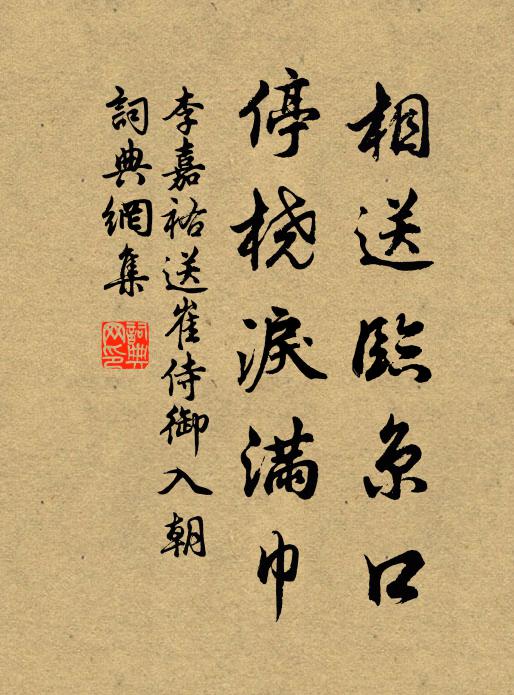 相送臨京口
停橈淚滿巾
李嘉祐送崔侍御入朝
詞典網集
詞典網印